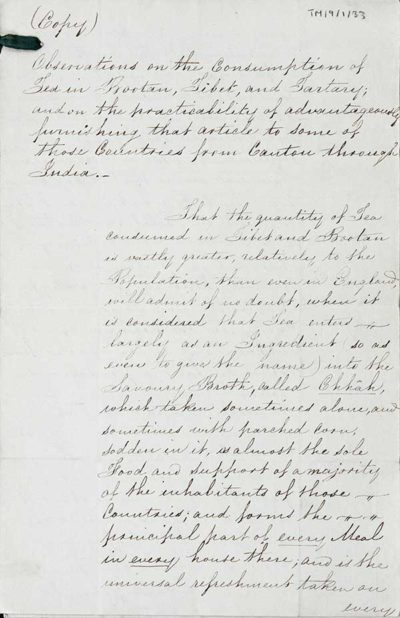 (Copy)
TM/9/1/33
Observations on the Consumption of
Tea in Bootan, Tibet, and Tartary;
and on the practicability of advantageously
furnishing that article to some of
those Countries from Canton through
India.-
That the quantity of Tea
consumed in Tibet and Bootan
is vastly greater, relatively to the
Population, than even in England,
will admit of no doubt, when it
is considered that Tea enters
largely as an Ingredient (so as
even to give the name) into the
Savoury Broth, called Chkâh,
which taken sometimes alone, and
sometimes with parched corn,
sodden in it, is almost the sole
Food and support of a majority
of the inhabitants of those
Countries; and forms the
principal part of every Meal
in every house there; and is the
universal refreshment taken on
every